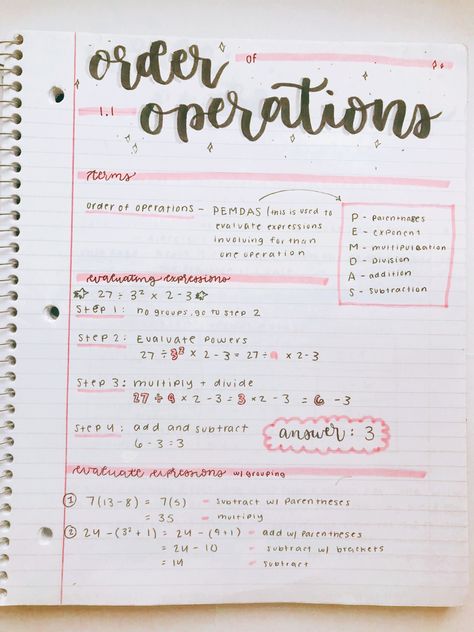 order of
1.1 operations
terms
order of operations - PEMDAS (this is used to
evaluate expressions
involving for than
one operation
P - parentheses
E - exponent
M - multiplication
D - division
A - addition
S - subtraction
evaluating expressions
27 ÷ 3² × 2 - 3
Step 1: no groups, go to step 2
Step 2: Evaluate powers
27 ÷ 3² × 2 - 3 = 27 ÷ 9 × 2 - 3
Step 3: multiply + divide
27 ÷ 9 × 2 - 3 = 3 × 2 - 3 = 6 - 3
Step 4: add and subtract
6 - 3 = 3
answer: 3
evaluate expressions w/ grouping
① 7(13 - 8) = 7(5) - subtract w/ parentheses
= 35 - multiply
② 24 - (3² + 1) = 24 - (9 + 1) - add w/ parentheses
= 24 - 10 - subtract w/ brackets
= 14 - subtract